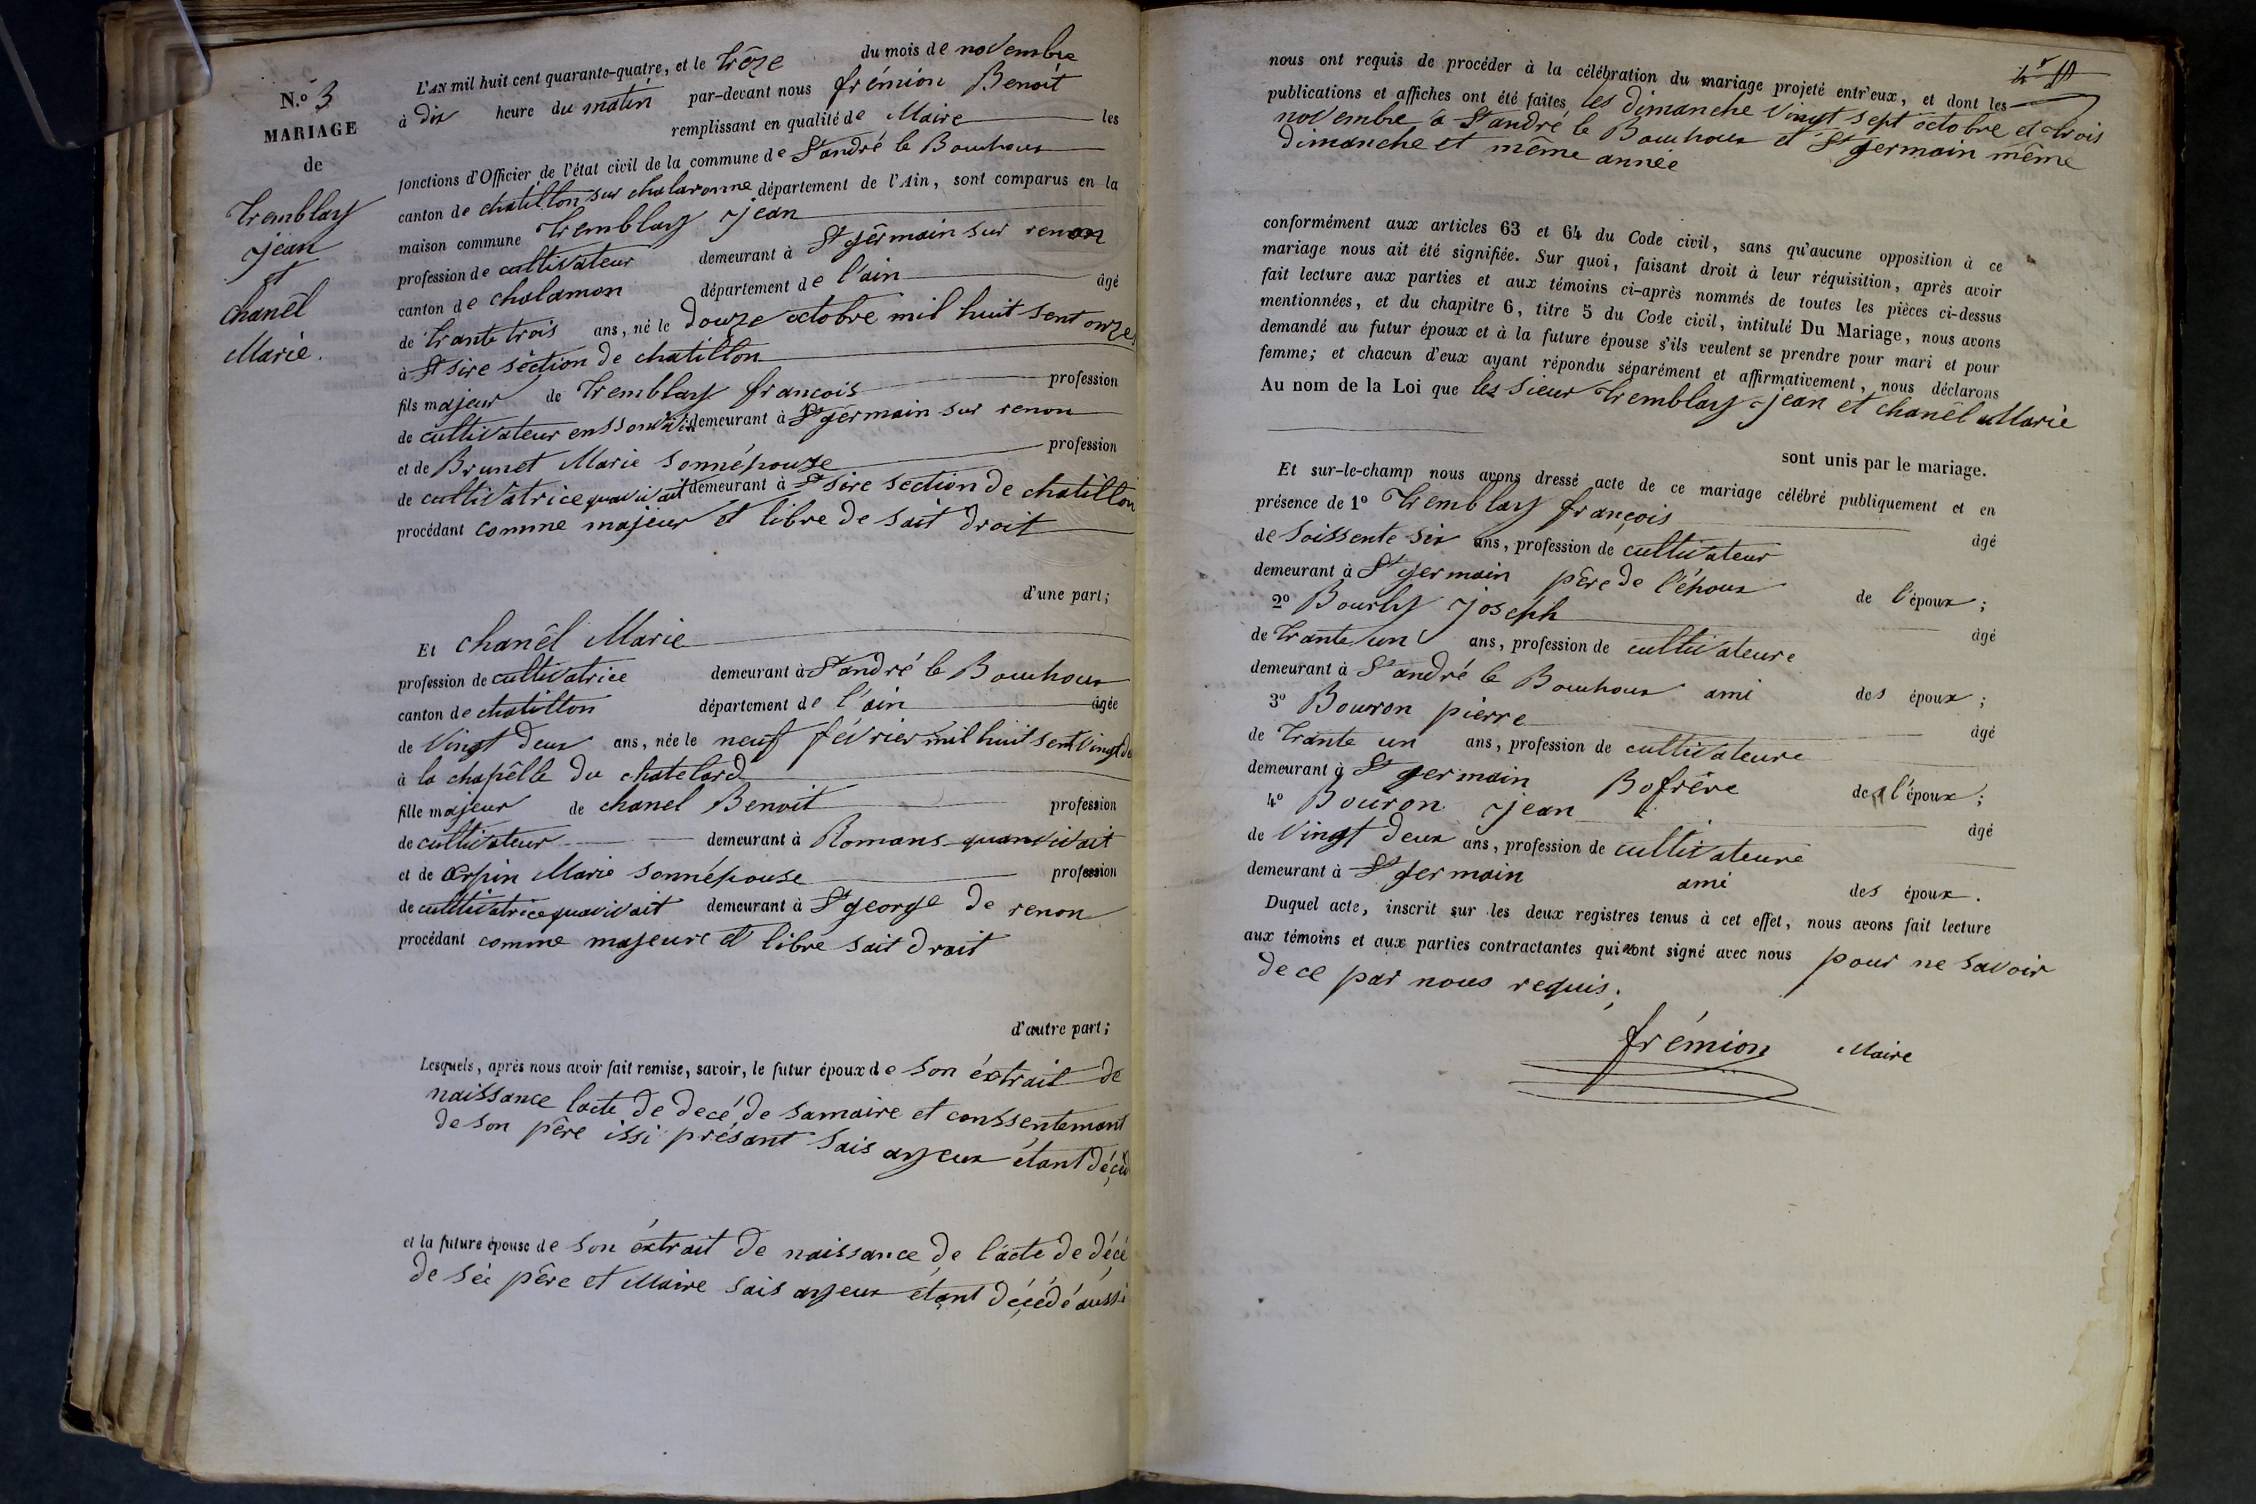 N.º 3
MARIAGE
de
Tremblay
jean
et
chanêl
Marie.
L'AN mil huit cent quarante-quatre, et le trêze du mois de novembre
à dix heure du matin par-devant nous frémion Benoit
remplissant en qualité de Maire les
fonctions d'Officier de l'état civil de la commune de St andré le Bouchoux
canton de chatillon sur chalaronne département de l'Ain, sont comparus en la
maison commune Tremblay jean
profession de cultivateur demeurant à St germain sur renon
canton de chalamon département de l'ain âgé
de trante trois ans, né le douze octobre mil huit sent onze
à St sire séction de chatillon
fils majeur de Tremblay françois profession
de cultivateur demeurant à St germain sur renon
et de Brunet Marie sonnépouze profession
de cultivatrice quavivait demeurant à St sire section de chatillon
procédant comme majeur et libre de sait droit
d'une part;
Et chanêl Marie
profession de cultivatrice demeurant à St andré le Bouchoux
canton de chatillon département de l'ain âgée
de vingt deux ans, née le neuf février mil huit sent vingt de
à la chapêlle du chatelard
fille majeur de chanel Benoit profession
de cultivateur demeurant à Romans quanvivait
et de arpin Marie sonnépouse profession
de cultivatrice quavivait demeurant à St george de renon
procédant comme majeure et libre sait droit
d'autre part;
Lesquels, après nous avoir fait remise, savoir, le futur époux de son éxtrait de
naissance lacte de decé de samaire et conssentemant
de son père issi présant sais ayeux étant décéd
et la future épouse de son éxtrait de naissance de l'acte de décé
de séi père et Maire sais ayeux étant décédé aussi
nous ont requis de procéder à la célébration du mariage projeté entr'eux, et dont les
publications et affiches ont été faites les dimanche vingt sept octobre et trois
novembre à St andré le Bouchoux et St germain même
dimanche et même annee
conformément aux articles 63 et 64 du Code civil, sans qu'aucune opposition à ce
mariage nous ait été signifiée. Sur quoi, faisant droit à leur réquisition, après avoir
fait lecture aux parties et aux témoins ci-après nommés de toutes les pièces ci-dessus
mentionnées, et du chapitre 6, titre 5 du Code civil, intitulé Du Mariage, nous avons
demandé au futur époux et à la future épouse s'ils veulent se prendre pour mari et pour
femme; et chacun d'eux ayant répondu séparément et affirmativement, nous déclarons
Au nom de la Loi que les sieur Tremblay jean et chanêl Marie
sont unis par le mariage.
Et sur-le-champ nous avons dressé acte de ce mariage célébré publiquement et en
présence de 1º Tremblay françois âgé
de soissente six ans, profession de cultivateur
demeurant à St germain père de l'époux de l'époux;
2º Bourly joseph âgé
de trante un ans, profession de cultivateure
demeurant à St andré le Bouchoux ami des époux;
3º Bouvron pierre âgé
de trante un ans, profession de cultivateure
demeurant à St germain Bofrêre de l'époux;
4º Bouvron jean âgé
de vingt deux ans, profession de cultivateure
demeurant à St germain ami des époux.
Duquel acte, inscrit sur les deux registres tenus à cet effet, nous avons fait lecture
aux témoins et aux parties contractantes qui nont signé avec nous pour ne savoir
de ce par nous requis;
frémion Maire